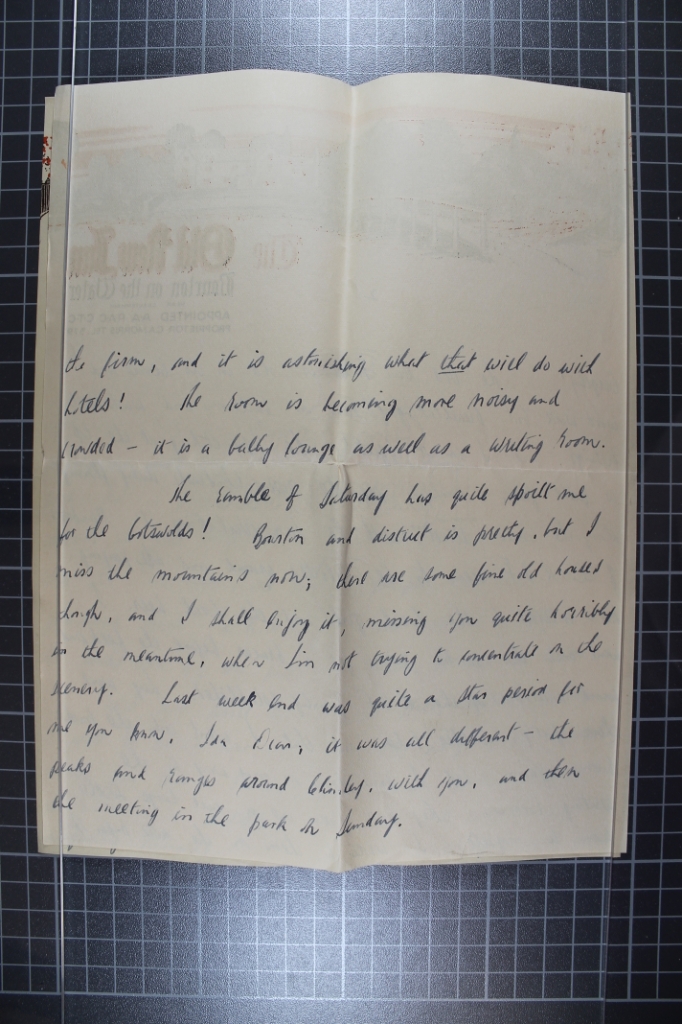 The
Old New Inn
Bourton on the Water
APPOINTED RAC
the firm, and it is astonishing what that will do with
hotels! The room is becoming more noisy and
crowded – it is a bally lounge as well as a writing room.
The ramble of Saturday has quite spoilt me
for the Cotswolds! Bourton and district is pretty, but I
miss the mountains now; there are some fine old houses
though, and I shall enjoy it, missing you quite horribly
in the meantime, when I'm not trying to concentrate on the
scenery. Last week end was quite a star period for
me you know, Ida Dear, it was all different – the
peaks and ranges around with you, and then
the meeting in the park on Sunday.